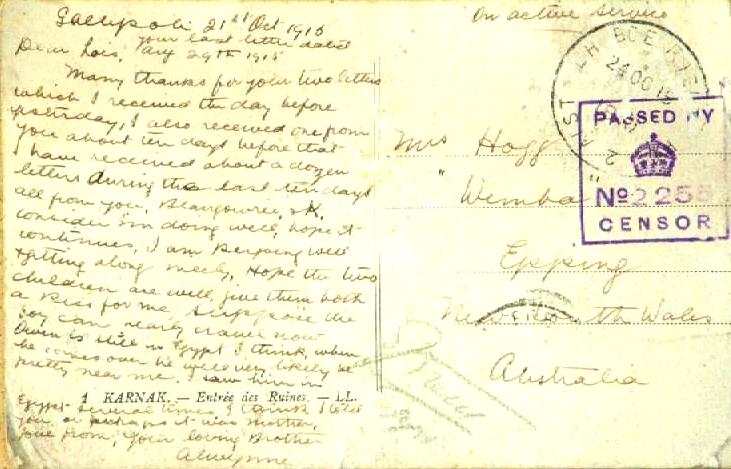 Gallipoli 21st Oct 1915
your last letter dated
Dear Lois, Aug 29th 1915
Many thanks for your two letters
which I received the day before
yesterday, I also received one from
you about ten days before that
I have received about a dozen
letters during the last ten days
all from you,
consider I'm doing well, hope it
continues, I am keeping well
& getting along nicely, Hope the two
children are well, give them both
a kiss for me, Suppose the
boy can nearly crawl now
Owen is still in Egypt I think, when
he comes over he will very likely be
pretty near me. I saw him in
1 KARNAK. — Entrée des Ruines. — LL.
Egypt several times, I think I told
you or perhaps it was mother,
love from, Your loving Brother
Alwynne
On active service
24 OC 15
PASSED BY
No 2255
CENSOR
Mrs Hogg
"Wemba
Epping
New South Wales
Australia